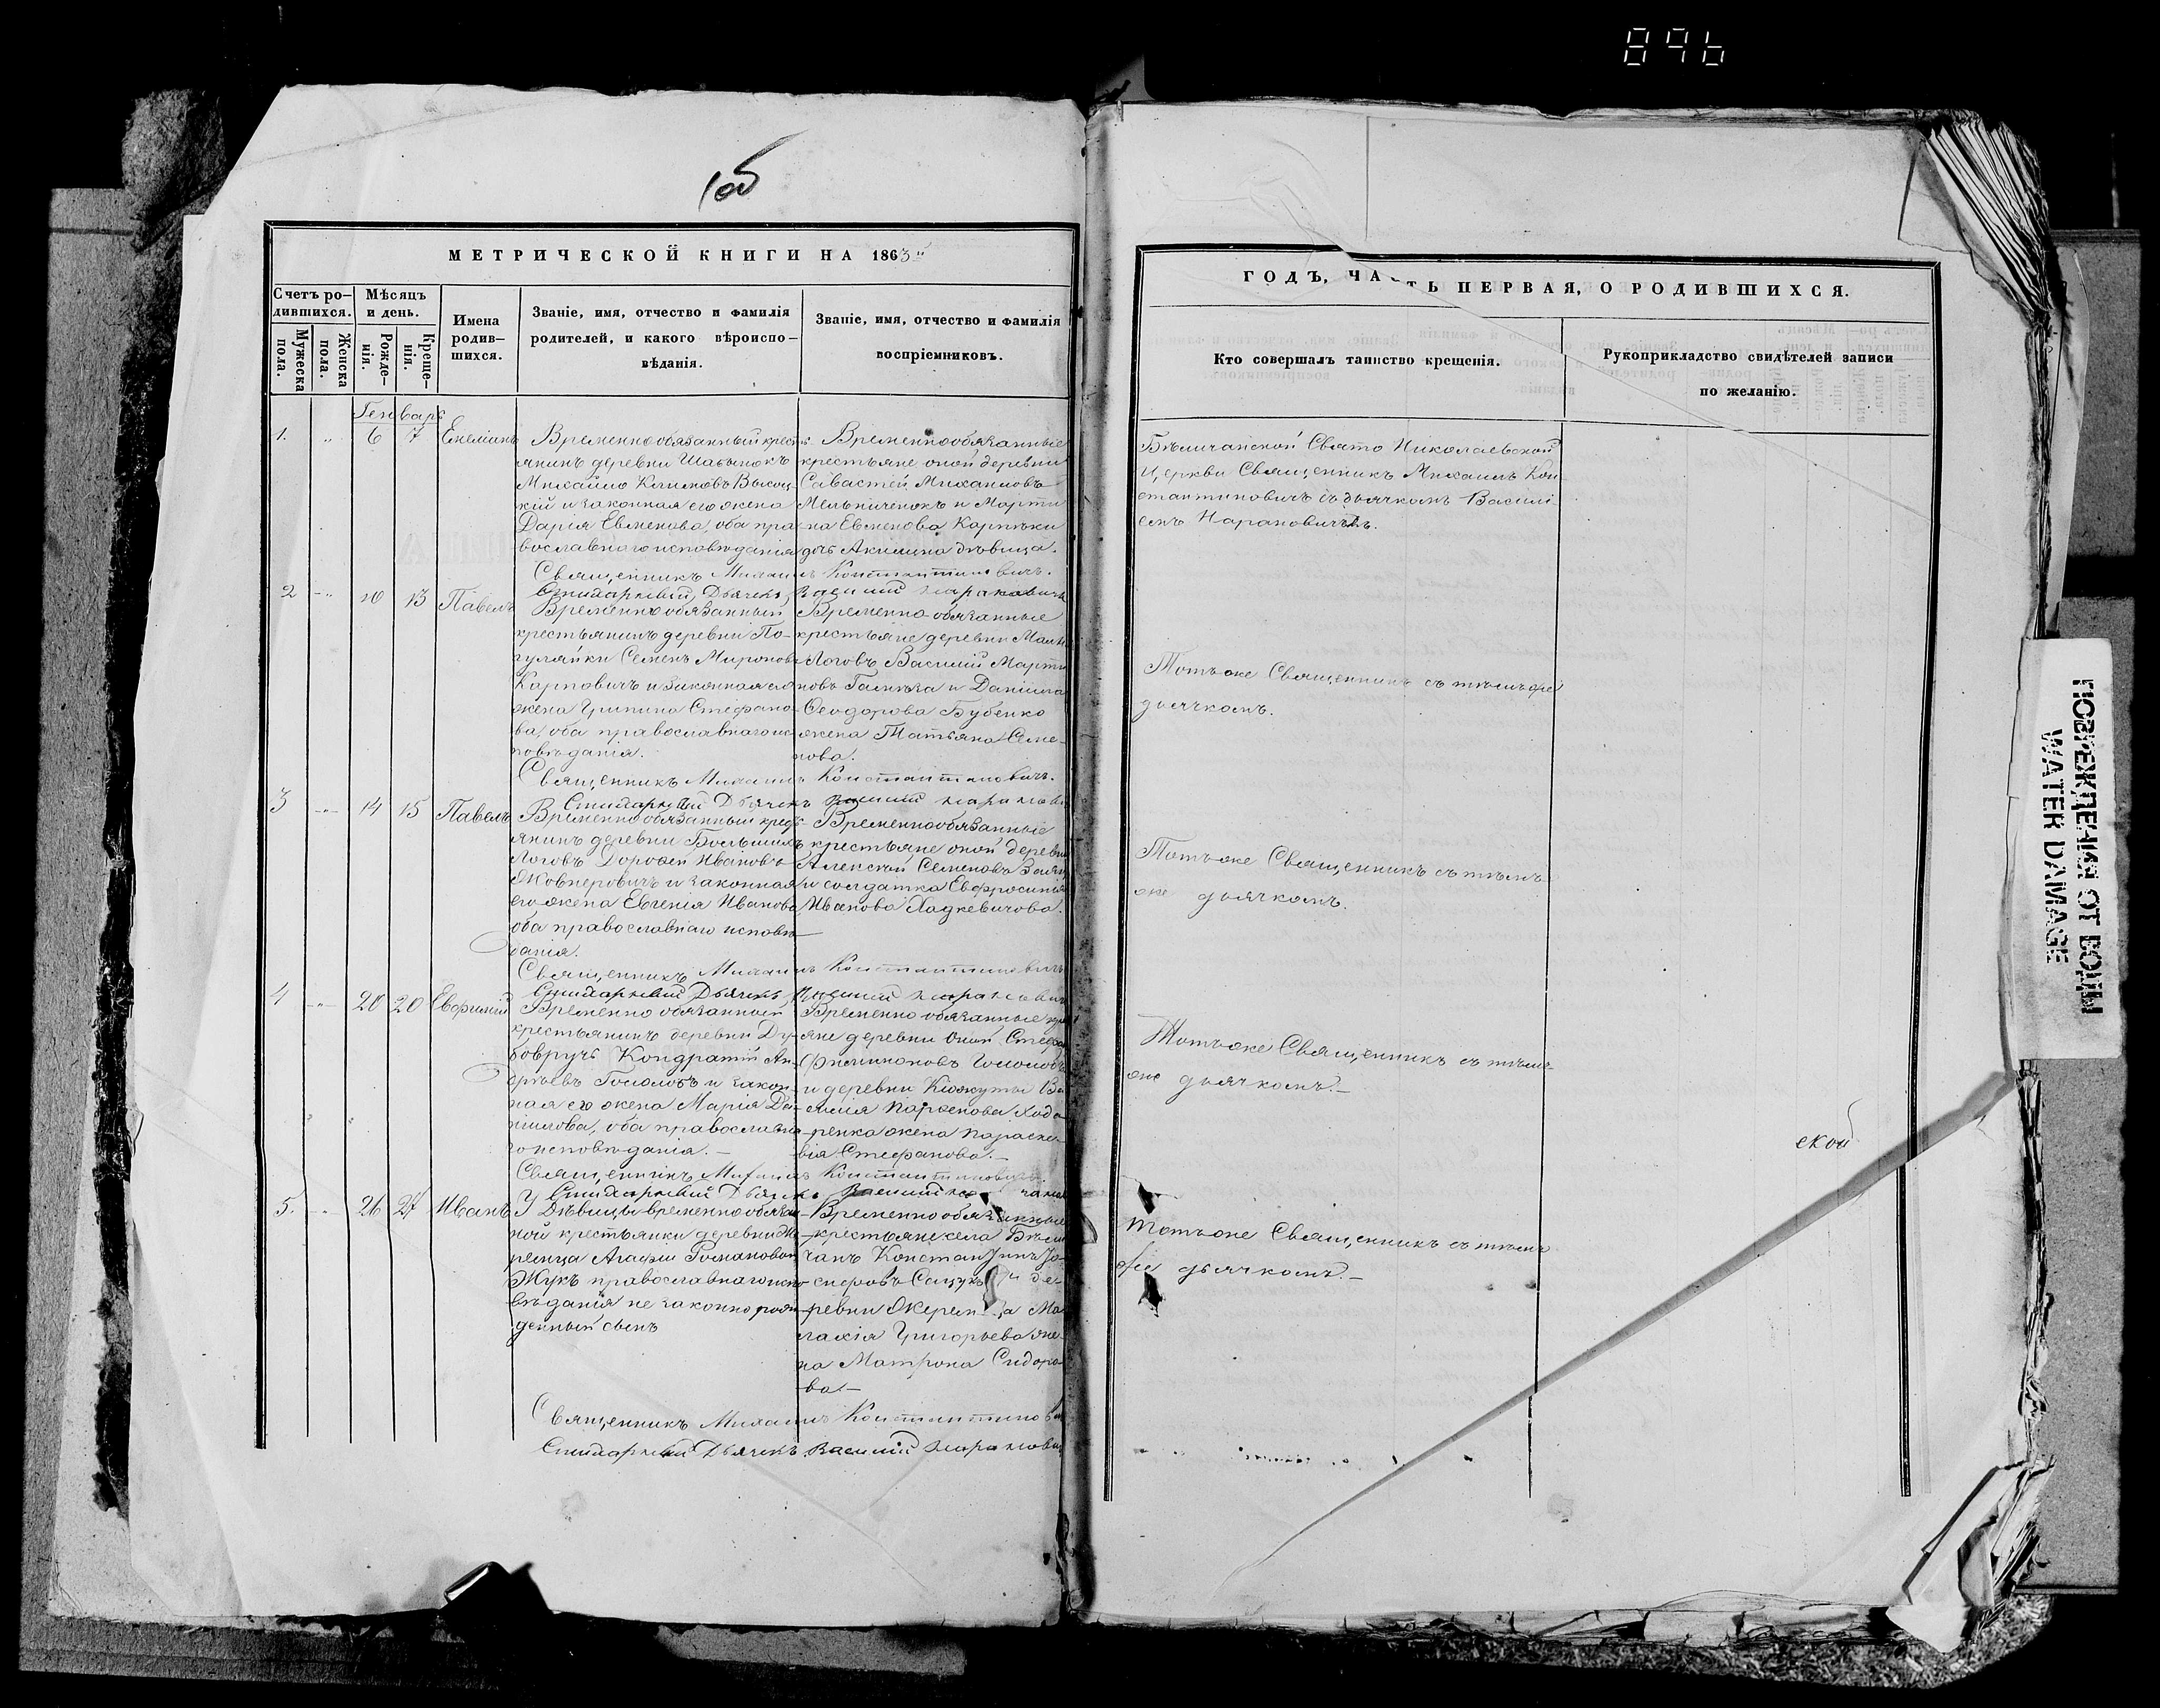 896
1об
МЕТРИЧЕСКОЙ КНИГИ НА 1863й
Счетъ ро-
дившихся.
Мѣсяцъ
и день.
Мужеска
пола.
Женска
пола.
Рожде-
нія.
Креще-
нія.
Имена
родив-
шихся.
Званіе, имя, отчество и фамилія
родителей, и какого вѣроиспо-
вѣданія.
Званіе, имя, отчество и фамилія
воспріемниковъ.
Генварь
1. " 6 7
Временнообязанный крест-
янинъ деревни
Михайло Климовъ Высоц-
кій и законная его жена
Дарія Евменова, оба пра-
вославнаго исповѣданія
Временнообязанные
крестьяне оной деревни
Михаиловъ
Мельниченокъ и Марти-
на Евменова
дочь Акилина дѣвица.
Священникъ Михаилъ Константиновичъ.
Стихарный Дьячекъ Василій
2 " 10 13 Павелъ
Временно обязанный
крестьянинъ деревни По-
гуляйки Семенъ Мироновъ
Карповичъ и законная его
жена Грипина Стефано-
ва, оба православнаго ис-
повѣданія.
Временно-обязанные
крестьяне деревни
Логовъ Василій Марти-
новъ и Даніила
Ѳеодорова Бубенко
жена Татьяна Семе-
нова.
Священникъ Михаилъ Константиновичъ.
Стихарный Дьячекъ Василій
3 " 14 15 Павелъ
Временнообязанный крест-
янинъ деревни Большихъ
Логовъ Дороѳей Ивановъ
и законная
его жена Евгенія Иванова
оба православнаго исповѣ-
данія.
Временнообязанные
крестьяне оной деревни
Алексѣй Семеновъ
и солдатка Евфросинія
Иванова Хадкевичова.
Священникъ Михаилъ Константиновичъ
Стихарный Дьячекъ Василій
4 " 20 20 Евфимій
Временно обязанный
крестьянинъ деревни Ду-
бовручь Кондратій Ан-
дреевъ и закон-
ная его жена Марія Да-
ниилова, оба православна-
го исповѣданія.-
Временно обязанные
яне деревни оной
и деревни Кложуты Ва-
силія Парѳенова Хода-
ренка жена Параске-
вія Стефанова.-
Священникъ Михаилъ Константиновичъ
Стихарный Дьячекъ Василій
5. " 26 27 Иванъ
У дѣвицы временнообязан-
ной крестьянки деревни Же-
ремца Агафіи Романовой
Жукъ православнаго испо-
вѣданія не законно рож-
денный сынъ
Временнообязанные
крестьяне села
Константинъ
и де-
ревни Ма-
лахія Григорьева же-
на Матрона Сидоро-
ва.-
Священникъ Михаилъ Константинови
Стихарный Дьячекъ Василій
ГОДЪ, ЧАСТЬ ПЕРВАЯ, О РОДИВШИХСЯ.
Кто совершалъ таинство крещенія.
Рукоприкладство свидѣтелей записи
по желанію.
Свято Николаевской
Церкви Священникъ Михаилъ Кон-
стантиновичъ съ дьячкомъ Василі-
емъ
Тотъже Священникъ съ тѣмъ же
дьячкомъ.
Тотъже Священникъ съ тѣмъ-
же дьячкомъ.
Тотъже Священникъ съ тѣмъ-
же дьячкомъ.-
ской
Тотъже Священникъ съ тѣмъ
же дьячкомъ.-
ПОВРЕЖДЕНИЯ ОТ ВОДЫ
WATER DAMAGE